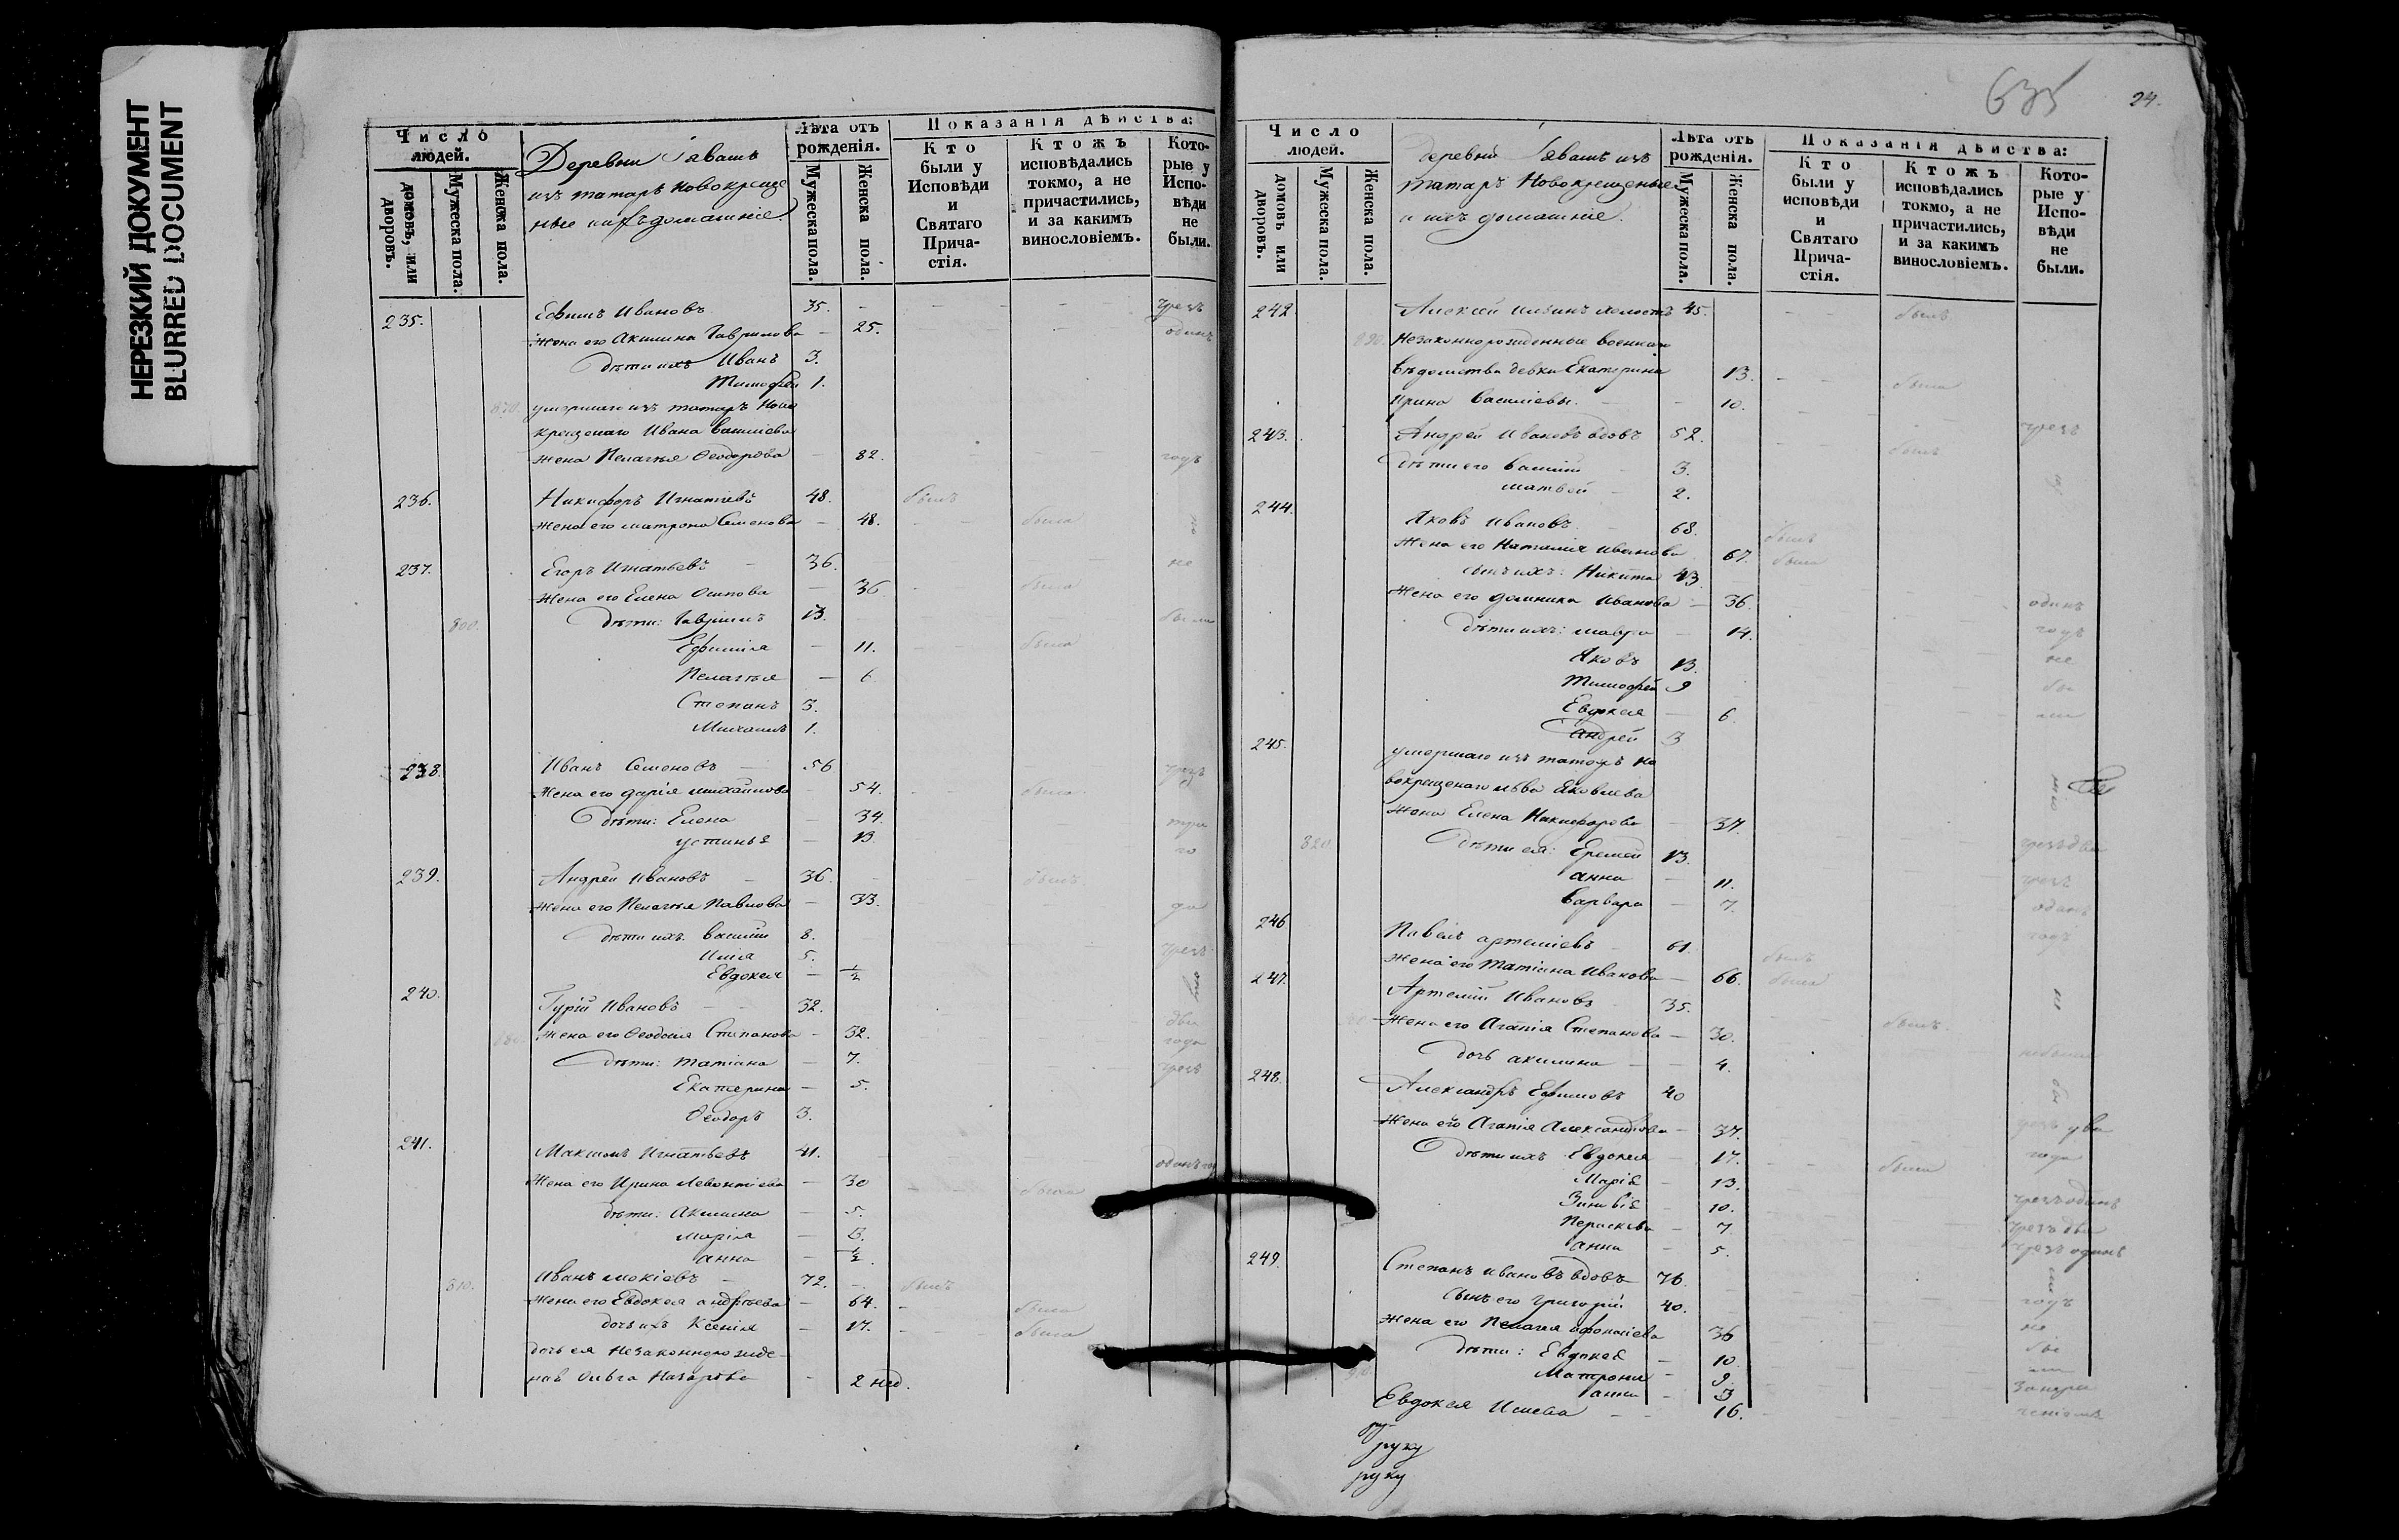 НЕРЕЗКИЙ ДОКУМЕНТ
BLURRED DOCUMENT
Число людей.
домовъ, или дворовъ.
Мужеска пола.
Женска пола.
Деревни
изъ татаръ новокреще
ные и ихъ домашніе.
Лѣта отъ рожденія.
Мужеска пола.
Женска пола.
Показанія дѣйства:
Кто были у Исповѣди и Святаго Причастія.
Ктожъ исповѣдались токмо, а не причастились, и за какимъ винословіемъ.
Которые у Исповѣди не были.
235. Ефимъ Ивановъ 35. чрезъ
жена его Акилина Гаврилова 25. одинъ
дѣти ихъ Иванъ 3.
Тимофей 1.
умершаго изъ татаръ ново
крещенаго Ивана Василіева
жена Пелагья Феодорова 82. годъ
236. Никифоръ Игнатіевъ 48. былъ
жена его Матрона Семенова 48. была
237. Егоръ Игнатьевъ 36. не
жена его Елена Осипова 36. была
800. дѣти: Гавріилъ 13. были
Ефимія 11. была
Пелагья 6
Степанъ 3.
Михаилъ 1.
238. Иванъ Семеновъ 56 чрезъ
жена его Дарія Михайлова 54. была
дѣти: Елена 34. три
Устинья 13. го
239. Андрей Ивановъ 36. былъ
жена его Пелагья Павлова 33. да
дѣти ихъ Василій 8.
Илія 5. чрезъ
Евдокея 1/2
240. Гурій Ивановъ 32.
жена его Феодосія Степанова 32. два
года
дѣти: Татіана 7.
Екатерина 5. чрезъ
Феодоръ 3.
241. Максимъ Игнатьевъ 41. одинъ го
жена его Ирина Левонтіева 30 была
дѣти: Акилина 5.
Марія 3.
Анна 1/2.
810. Иванъ Мокіевъ 72. былъ
жена его Евдокея Андреева 64. была
дочь ихъ Ксенія 17. была
дочь ея незаконнорожде
ная Ольга Назарова 2 нед.
635
24.
Число людей.
домовъ или дворовъ.
Мужеска пола.
Женска пола.
деревни изъ
татаръ новокрещеные
и ихъ домашніе.
Лѣта отъ рожденія.
Мужеска пола.
Женска пола.
Показанія дѣйства:
Кто были у исповѣди и Святаго Причастія.
Ктожъ исповѣдались токмо, а не причастились, и за какимъ винословіемъ.
Которые у Исповѣди не были.
242. Алексей Ильинъ холостъ 45. былъ
890. Незаконнорожденные военнаго
вѣдомства девки Екатерина 13. была
Ирина Василіевы. 10.
243. Андрей Ивановъ вдовъ 52. былъ чрезъ
дѣти его Василій 3.
Матвей 2.
244. Яковъ Ивановъ 68. былъ
жена его Наталия Иванова 67. была
сынъ ихъ: Никита 43
жена его Домника Иванова 36. одинъ
дѣти ихъ: Мавра 14. годъ
Яковъ 13. не
Тимофей 9 бы
Евдокея 6. ли
Андрей 3
245. умершаго изъ татаръ но
вокрещенаго Льва Яковлева
жена Елена Никифорова 37.
820. дѣти ея: Еремей 13. чрезъ два
Анна 11. чрезъ
Варвара 7. одинъ
246. Павелъ Артеміевъ 61. былъ годъ
жена его Татіана Иванова 66. была
247. Артемій Ивановъ 35. былъ
жена его Агапія Степанова 30.
дочь Акилина 4.
248. Александръ Ефимовъ 40
жена его Агапія Александрова 37. чрезъ два
дѣти ихъ Евдокея 17. была года
Марія 13.
Зиновія 10. чрезъ одинъ
Параскева 7. чрезъ два
Анна 5. чрезъ одинъ
249. Степанъ Ивановъ вдовъ 76.
сынъ его Григорій 40. годъ
жена его Пелагея Афонасіева 36 не
дѣти: Евдокея 10. бы
Матрона 9. ли
Анна 3
Евдокея Исаева 16.
ру
руку
руку